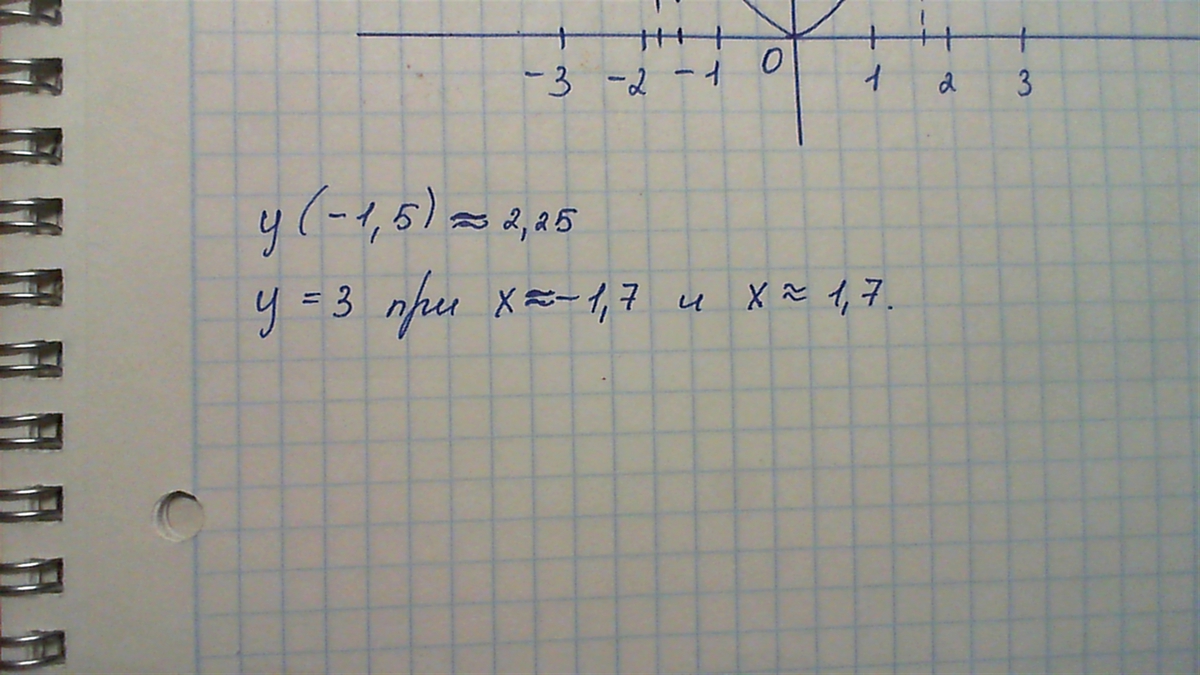 -3 -2 -1 0 1 2 3
y (-1,5) ≈ 2,25
y = 3 при x ≈ -1,7 и x ≈ 1,7.